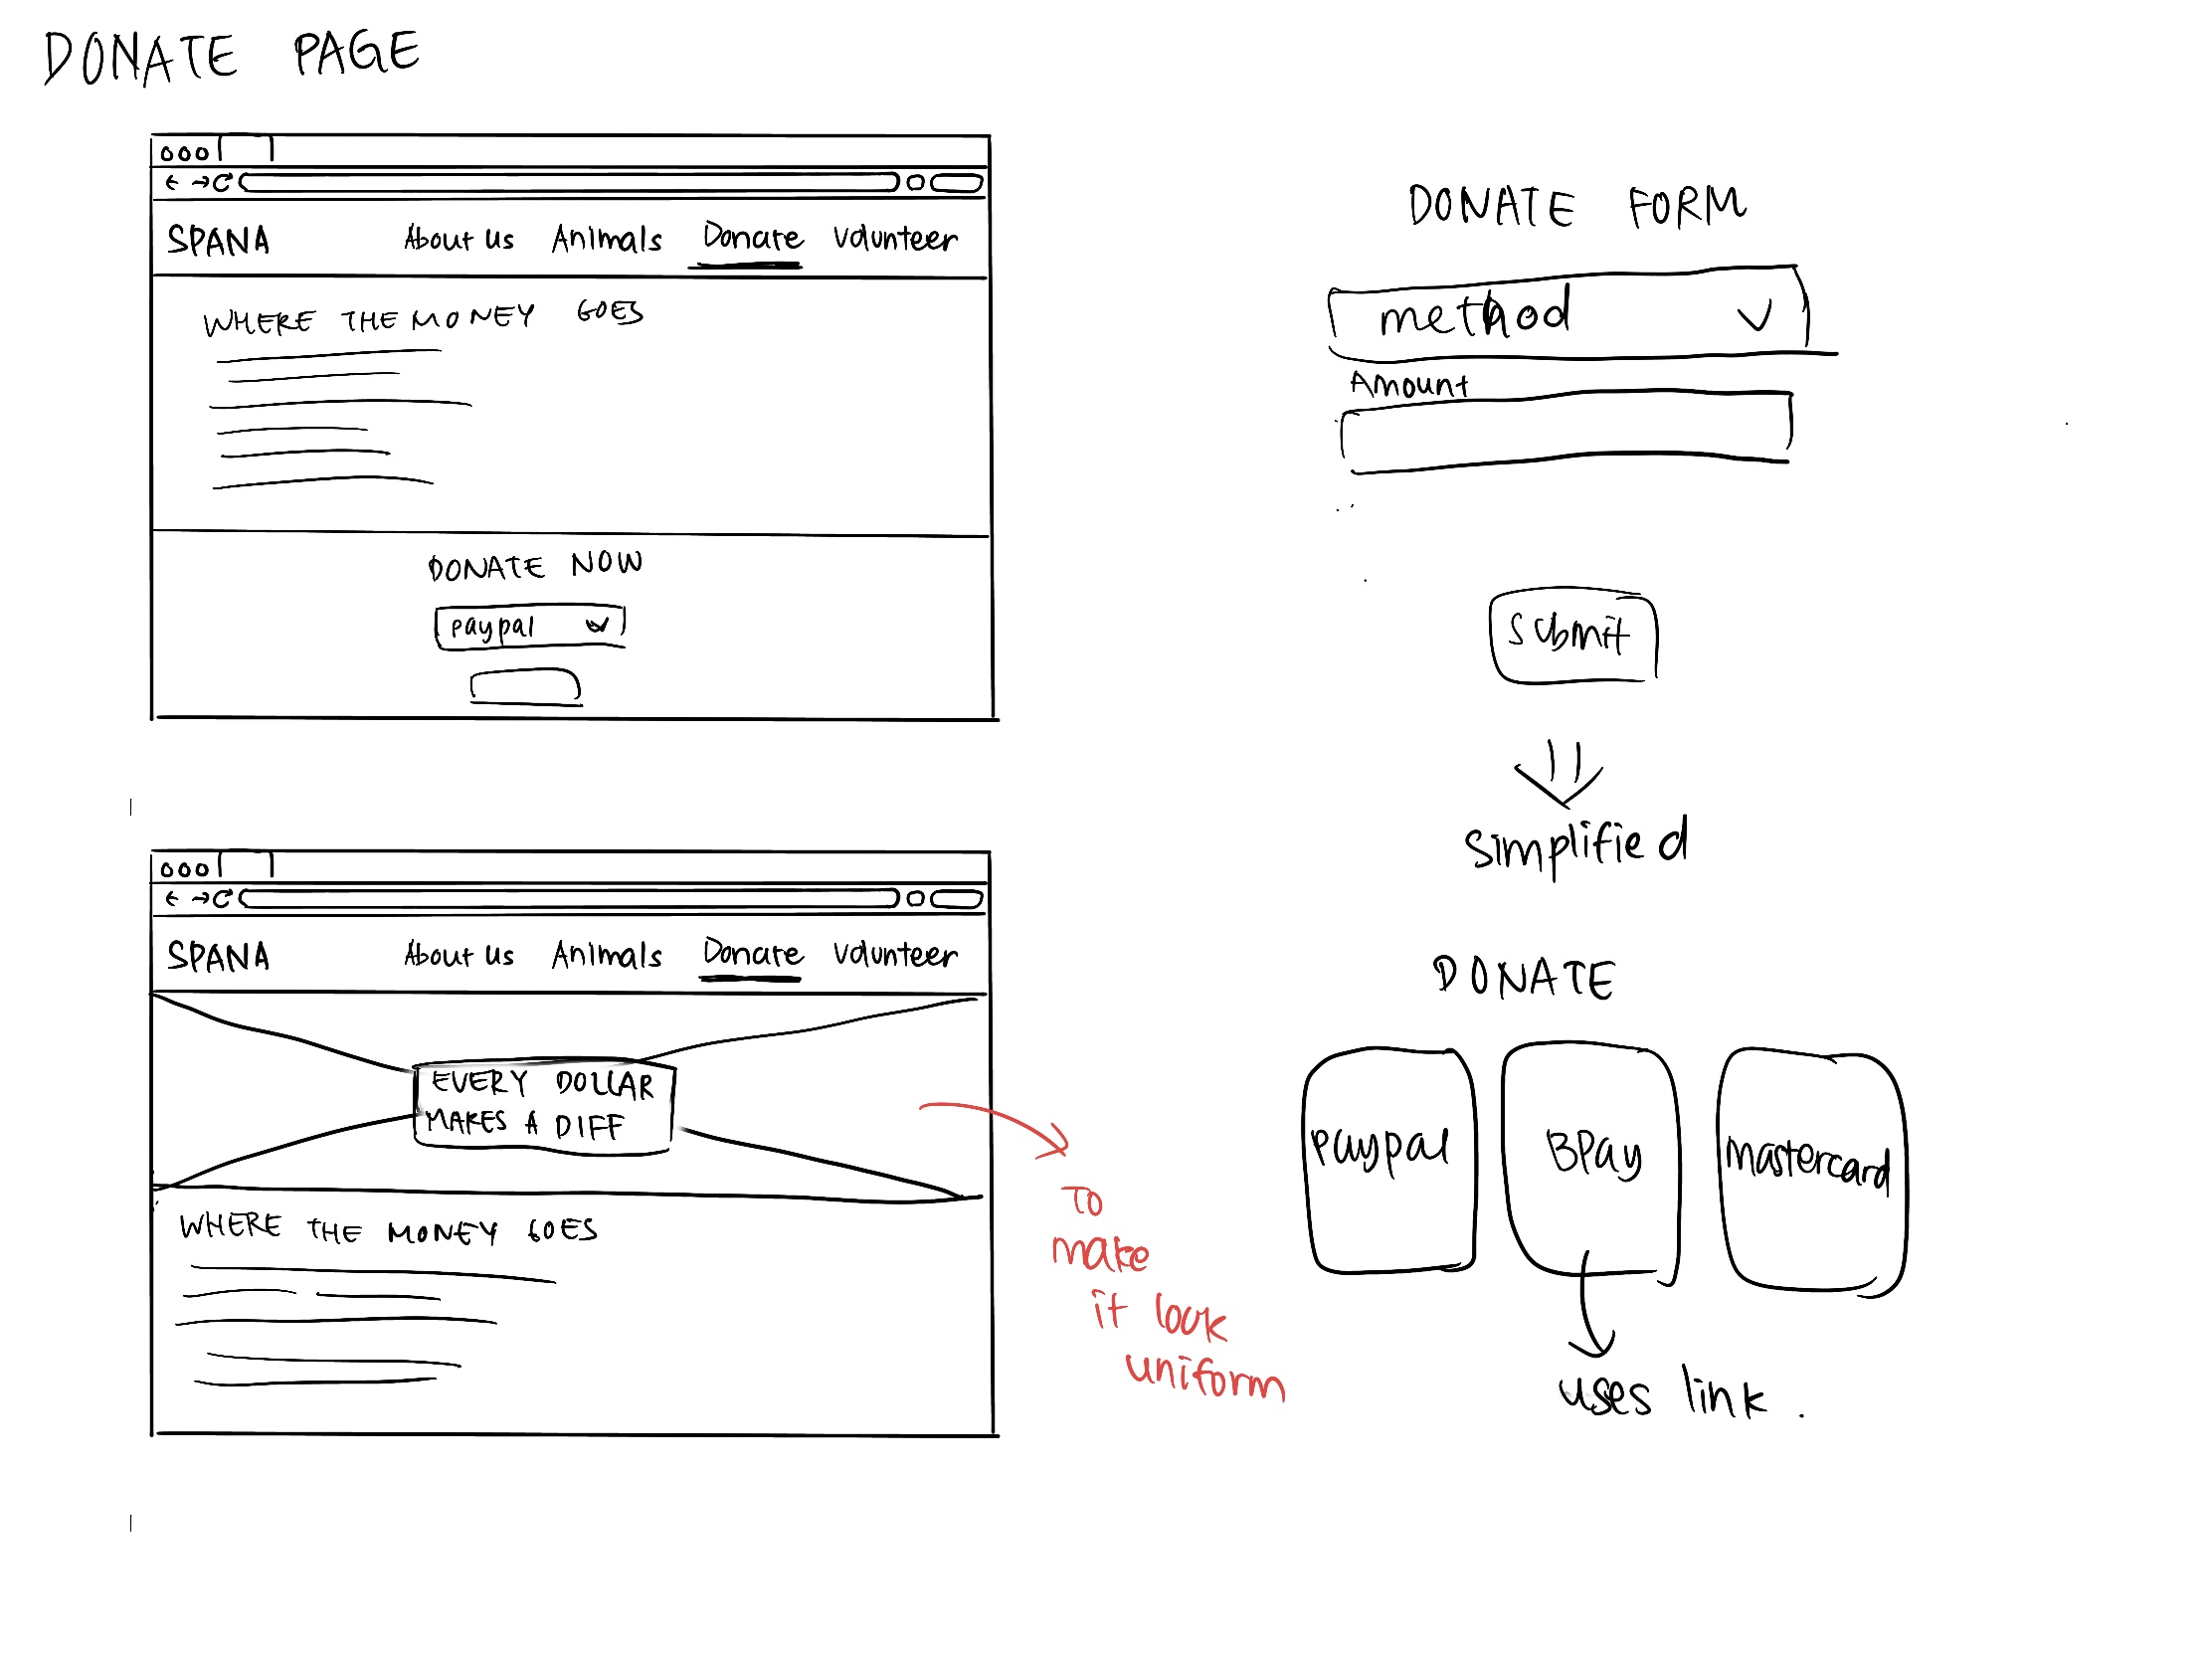 DONATE PAGE
SPANA About Us Animals Donate Volunteer
WHERE THE MONEY GOES
DONATE NOW
paypal
SPANA About Us Animals Donate Volunteer
EVERY DOLLAR
MAKES A DIFF
WHERE THE MONEY GOES
TO
make
it look
uniform
DONATE FORM
method
Amount
submit
simplified
DONATE
Paypal BPay mastercard
uses link.